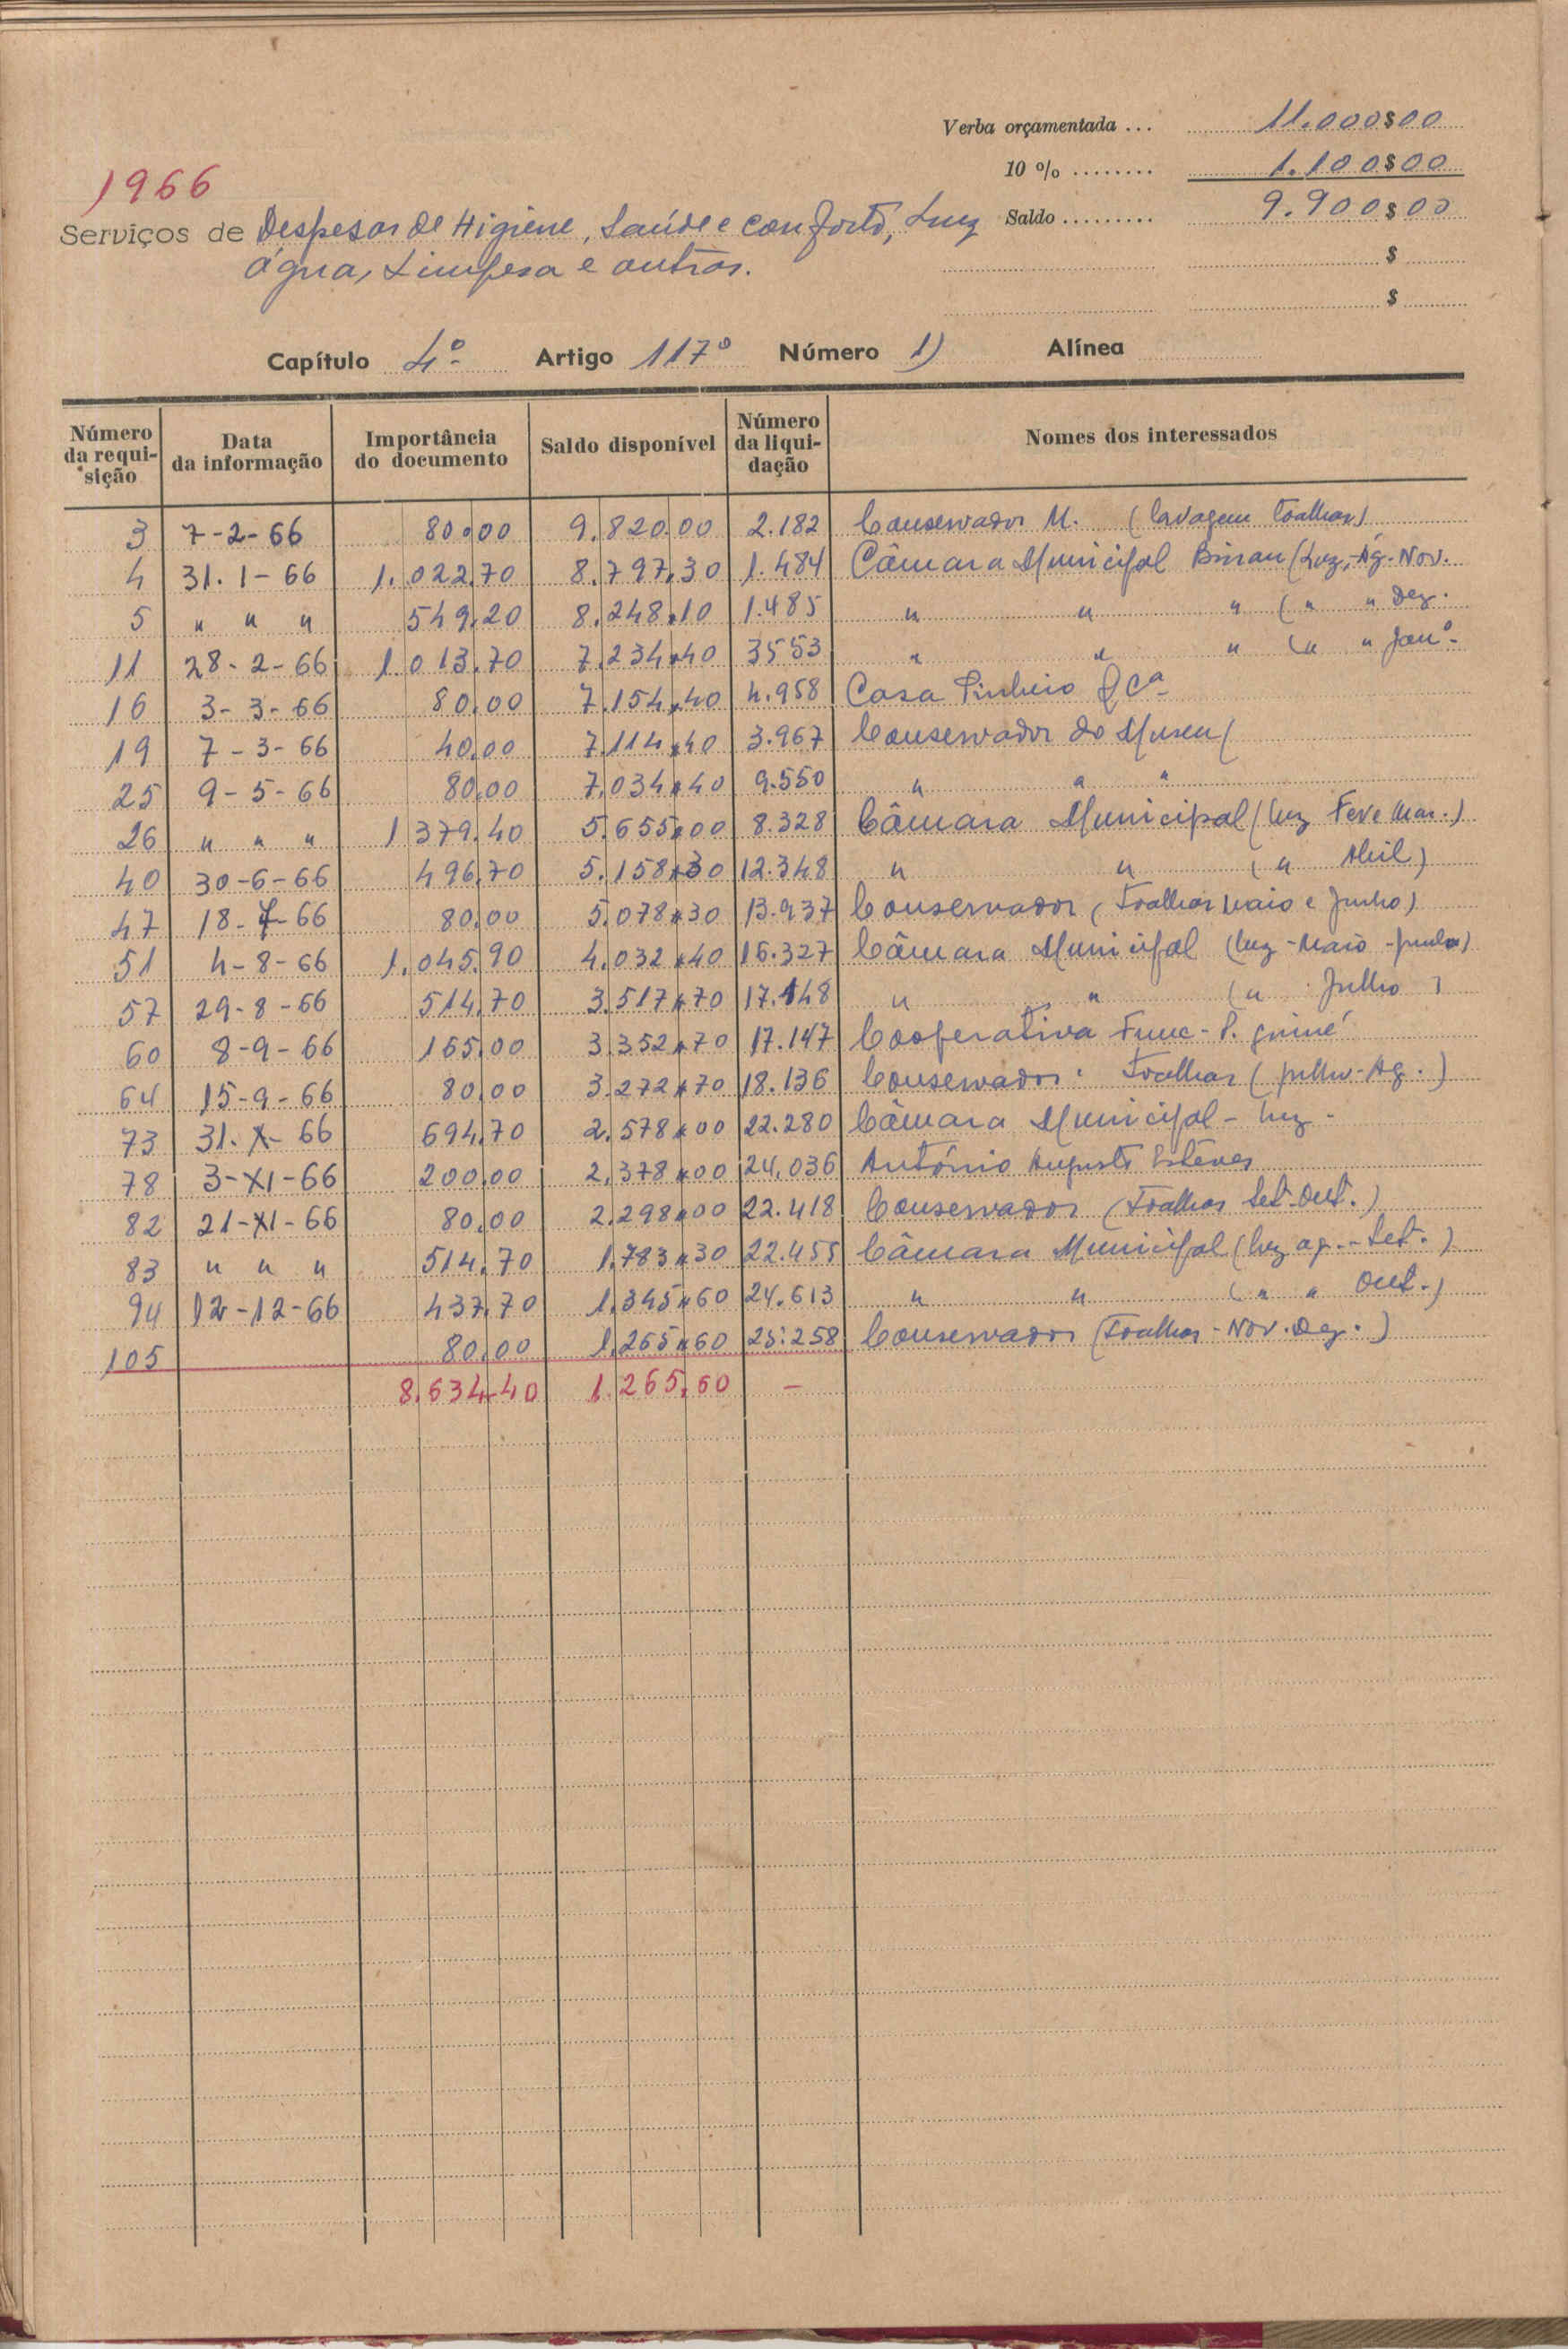 Verba orçamentada ... 11.000$00
10 % ........ 1.100$00
1966
Saldo ......... 9.900$00
Serviços de Despesas de Higiene, Saúde e conforto, Luz
água, Limpesa e outras.
$
$
Capítulo 4º Artigo 117º Número 1) Alínea
Número da requisição Data da informação Importância do documento Saldo disponível Número da liquidação Nomes dos interessados
3 7-2-66 80.00 9.820.00 2.182 Conservador M. (lavagem toalhas)
4 31.1-66 1.022.70 8.797.30 1.484 Câmara Municipal Bissau (Luz, Ág. Nov.
5 " " " 549.20 8.248.10 1.485 " " " (" " Dez.
11 28-2-66 1.013.70 7.234.40 3553 " " " (" " Janº
16 3-3-66 80.00 7.154.40 4.958 Casa Pinheio & Cª
19 7-3-66 40.00 7.114.40 3.967 Conservador do Museu (
25 9-5-66 80.00 7.034.40 9.550 " " "
26 " " " 1379.40 5.655.00 8.328 Câmara Municipal (luz Fev e Mar.)
40 30-6-66 496.70 5.158.30 12.348 " " (" Abril)
47 18-7-66 80.00 5.078.30 13.937 Conservador (Toalhas Maio e Junho)
51 4-8-66 1.045.90 4.032.40 16.327 Câmara Municipal (luz - Maio - Junho)
57 29-8-66 514.70 3.517.70 17.148 " " (" Julho )
60 8-9-66 165.00 3.352.70 17.147 Cooperativa Func. P. Guiné
64 15-9-66 80.00 3.272.70 18.136 Conservador. Toalhas (Julho-Ag.)
73 31-X-66 694.70 2.578.00 22.280 Câmara Municipal - luz -
78 3-XI-66 200.00 2.378.00 24.036 António Augusto Esteves
82 21-XI-66 80.00 2.298.00 22.418 Conservador (Toalhas Set-Out.)
83 " " " 514.70 1.783.30 22.455 Câmara Municipal (luz ag. - Set.)
94 12-12-66 437.70 1.345.60 24.613 " " (" " Out.)
105 80.00 1.265.60 25.258 Conservador (Toalhas - Nov. Dez.)
8.634.40 1.265.60 -